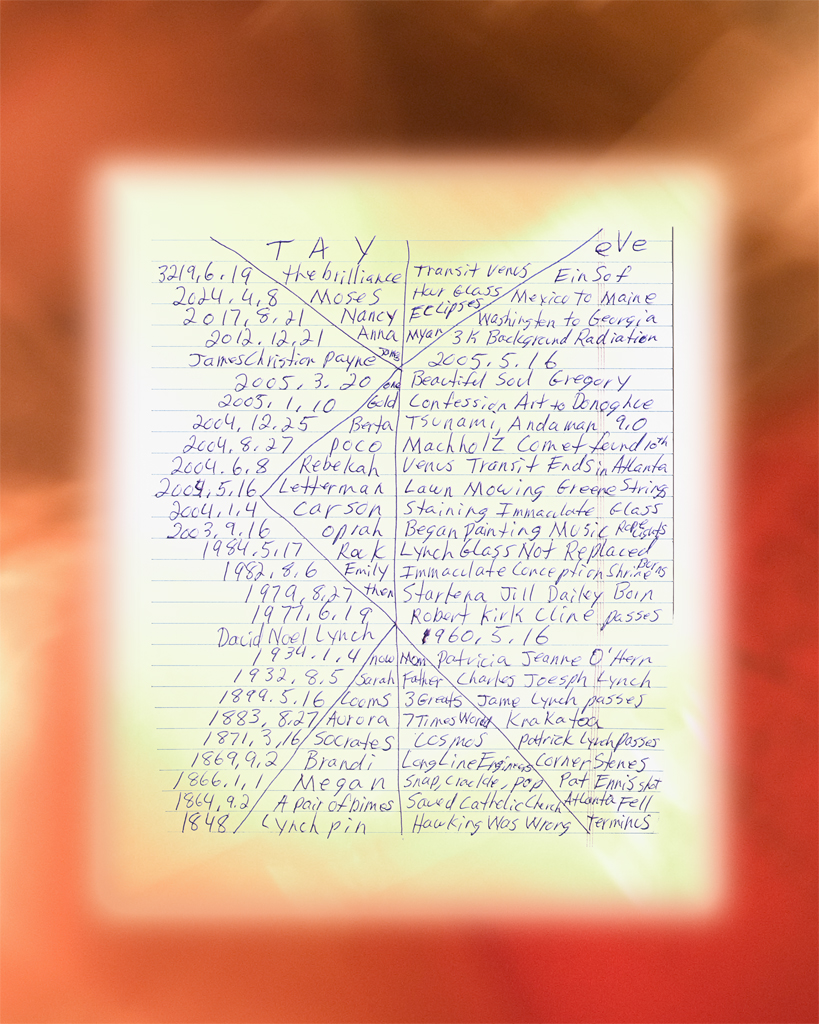 TAY eVe
3219,6.19 the brilliance Transit Venus Ein Sof
2024.4,8 Moses Hour Glass Mexico to Maine
2017,8.21 Nancy Eclipses Washington to Georgia
2012.12,21 Anna Myan 3K Background Radiation
James Christian Payne Jones 2005.5.16
2005.3.20 one Beautiful Soul Gregory
2005.1,10 Gold Confession Art to Donoghue
2004,12.25 Berta Tsunami, Andaman 9.0
2004.8.27 poco Machholz Comet found 10th
2004.6.8 Rebekah Venus Transit Ends in Atlanta
2004,5,16 Letterman Lawn Mowing Greene String
2004.1.4 Carson Staining Immaculate Glass
2003.9.16 oprah Began Painting Music Rope Lights
1984.5,17 Rock Lynch Glass Not Replaced
1982,8.6 Emily Immaculate Conception Shrine Burns
1979,8,27 then Startena Jill Dailey Born
1977,6.19 Robert Kirk Cline passes
David Noel Lynch 1960.5.16
1934.1.4 now Mom Patricia Jeanne O'Hern
1932,8.5 Sarah Father Charles Joesph Lynch
1899.5.16 Looms 3 Greats Jame Lynch passes
1883,8.27 Aurora 7 Times World Krakatoa
1871,3,16 Socrates Cosmos patrick Lynch Passes
1869,9,2 Brandi Long Line Engineers Corner Stones
1866.1,1 Megan Snap, Crackle, pop Pat Ennis shot
1864,9.2 A pair of Dimes Saved Catholic Church Atlanta Fell
1848 Lynch pin Hawking Was Wrong Terminus